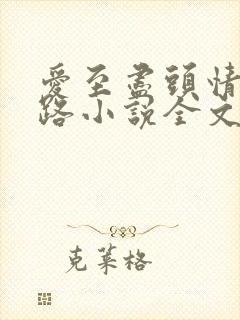 愛至盡頭情
路小說全文
克萊格